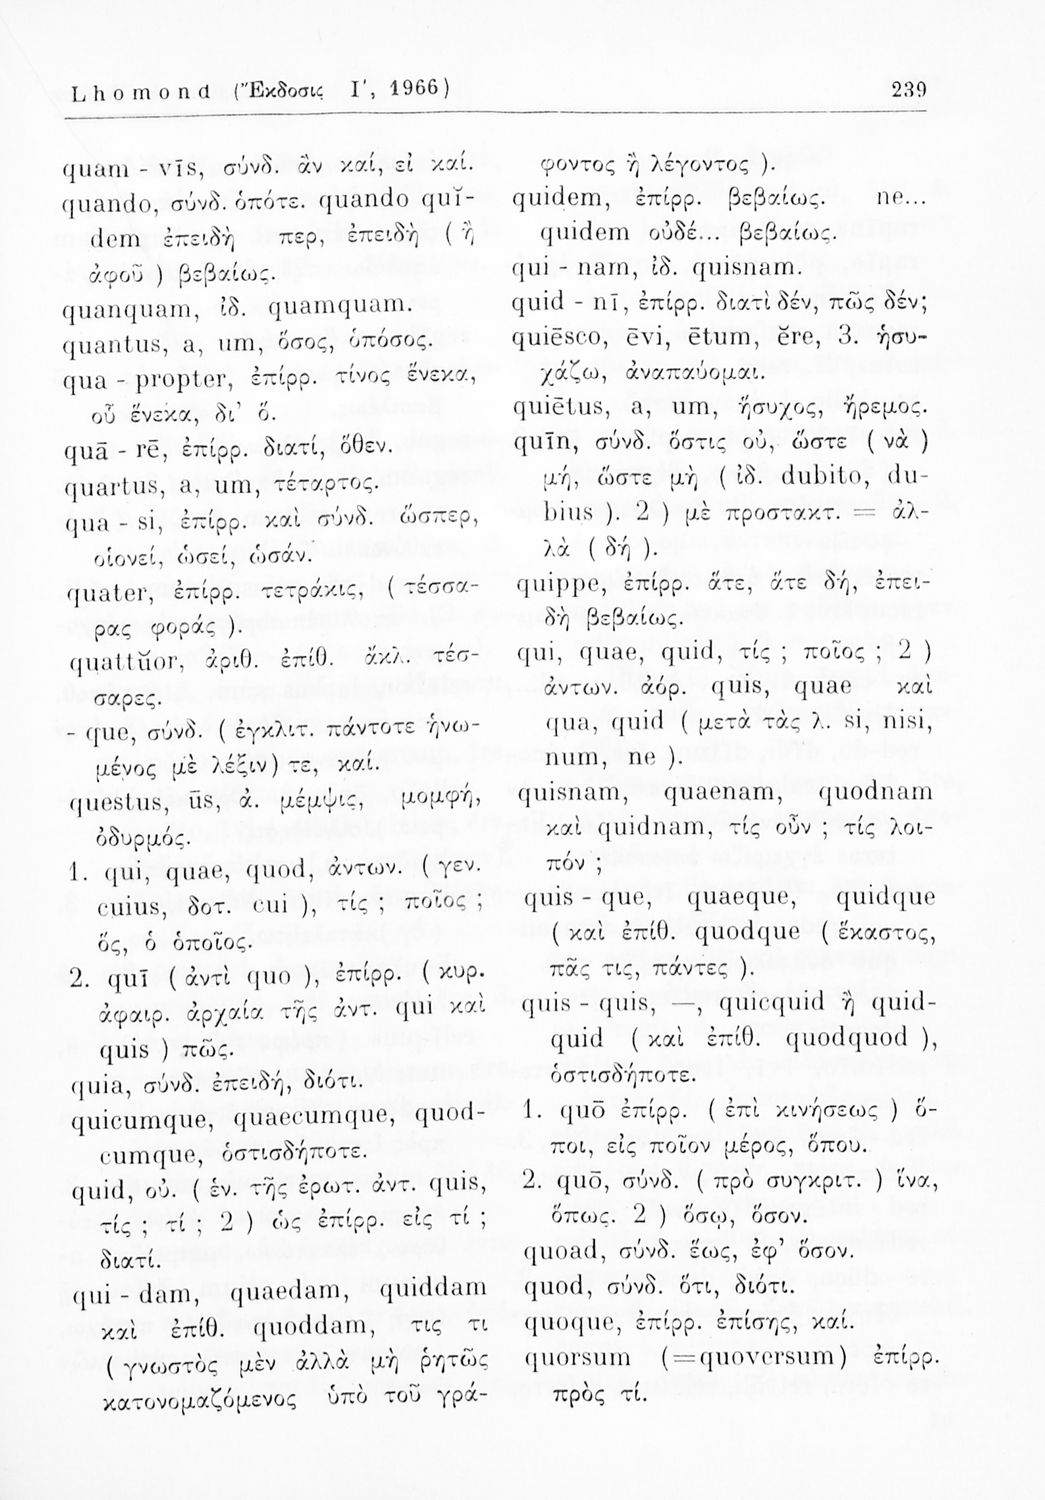 Lhomond (Ἔκδοσις Ι', 1966) 239
quam - vīs, σύνδ. ἂν καί, εἰ καί.
quando, σύνδ. ὁπότε. quando quĭ-
dem ἐπειδὴ περ, ἐπειδὴ ( ἢ
ἀφοῦ ) βεβαίως.
quanquam, ἰδ. quamquam.
quantus, a, um, ὅσος, ὁπόσος.
qua - propter, ἐπίρρ. τίνος ἕνεκα,
οὗ ἕνεκα, δι' ὅ.
quā - rē, ἐπίρρ. διατί, ὅθεν.
quartus, a, um, τέταρτος.
qua - si, ἐπίρρ. καὶ σύνδ. ὥσπερ,
οἱονεί, ὡσεί, ὡσάν.
quater, ἐπίρρ. τετράκις, ( τέσσα-
ρας φοράς ).
quattŭor, ἀριθ. ἐπίθ. ἄκλ. τέσ-
σαρες.
- que, σύνδ. ( ἐγκλιτ. πάντοτε ἡνω-
μένος μὲ λέξιν) τε, καί.
questus, ūs, ἀ. μέμψις, μομφή,
ὀδυρμός.
1. qui, quae, quod, ἀντων. ( γεν.
cuius, δοτ. cui ), τίς ; ποῖος ;
ὅς, ὁ ὁποῖος.
2. quī ( ἀντὶ quo ), ἐπίρρ. ( κυρ.
ἀφαιρ. ἀρχαία τῆς ἀντ. qui καὶ
quis ) πῶς.
quia, σύνδ. ἐπειδή, διότι.
quicumque, quaecumque, quod-
cumque, ὁστισδήποτε.
quid, οὐ. ( ἑν. τῆς ἐρωτ. ἀντ. quis,
τίς ; τί ; 2 ) ὡς ἐπίρρ. εἰς τί ;
διατί.
qui - dam, quaedam, quiddam
καὶ ἐπίθ. quoddam, τις τι
( γνωστὸς μὲν ἀλλὰ μὴ ῥητῶς
κατονομαζόμενος ὑπὸ τοῦ γρά-
φοντος ἢ λέγοντος ).
quidem, ἐπίρρ. βεβαίως. ne...
quidem οὐδέ... βεβαίως.
qui - nam, ἰδ. quisnam.
quid - nī, ἐπίρρ. διατὶ δέν, πῶς δέν;
quiēsco, ēvi, ētum, ĕre, 3. ἡσυ-
χάζω, ἀναπαύομαι.
quiētus, a, um, ἥσυχος, ἤρεμος.
quīn, σύνδ. ὅστις οὐ, ὥστε ( νὰ )
μή, ὥστε μὴ ( ἰδ. dubito, du-
bius ). 2 ) μὲ προστακτ. = ἀλ-
λὰ ( δή ).
quippe, ἐπίρρ. ἅτε, ἅτε δή, ἐπει-
δὴ βεβαίως.
qui, quae, quid, τίς ; ποῖος ; 2 )
ἀντων. ἀόρ. quis, quae καὶ
qua, quid ( μετὰ τὰς λ. si, nisi,
num, ne ).
quisnam, quaenam, quodnam
καὶ quidnam, τίς οὖν ; τίς λοι-
πόν ;
quis - que, quaeque, quidque
( καὶ ἐπίθ. quodque ( ἕκαστος,
πᾶς τις, πάντες ).
quis - quis, —, quicquid ἢ quid-
quid ( καὶ ἐπίθ. quodquod ),
ὁστισδήποτε.
1. quō ἐπίρρ. ( ἐπὶ κινήσεως ) ὅ-
ποι, εἰς ποῖον μέρος, ὅπου.
2. quō, σύνδ. ( πρὸ συγκριτ. ) ἵνα,
ὅπως. 2 ) ὅσῳ, ὅσον.
quoad, σύνδ. ἕως, ἐφ' ὅσον.
quod, σύνδ. ὅτι, διότι.
quoque, ἐπίρρ. ἐπίσης, καί.
quorsum (=quoversum) ἐπίρρ.
πρὸς τί.